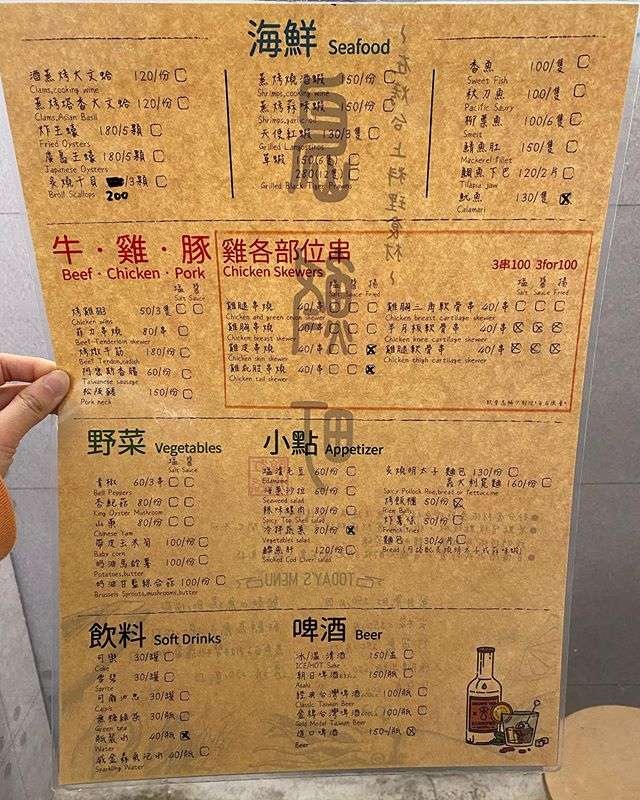 海鮮 Seafood
酒蒸烤大文蛤 120/份
Clams,cooking wine
蒸烤塔香大文蛤 120/份
Clams,Asian Basil
炸生蠔 180/5顆
Fried Oysters
廣島生蠔 180/5顆
Japanese Oysters
炙燒干貝 /3顆
Broil Scallops 200
蒸烤燒酒蝦 150/份
Shrimps,cooking wine
蒸烤蒜味蝦 150/份
Shrimps,garlic
天使紅蝦 130/3隻
Grilled Langostinos
草蝦 150(6隻)
280(12隻)
Grilled Black Tiger Prawns
香魚 100/隻
Sweet Fish
秋刀魚 100/隻
Pacific Saury
柳葉魚 100/6隻
Smelt
鯖魚肚 150/隻
Mackerel fillet
鯛魚下巴 120/2片
Tilapia jaw
魷魚 130/隻
Calamari
~石烤台上料理食材~
牛·雞·豚
Beef·Chicken·Pork
鹽 醬
Salt Sauce
烤雞翅 50/3隻
Chicken wing
菲力串燒 80/串
Beef Tenderloin skewer
烤嫩牛筋 180/份
Beef Tendon,radish
阿嬤鄉香腸 60/份
Taiwanese sausage
松阪豬 150/份
Pork neck
雞各部位串
Chicken Skewers
3串100 3for100
鹽 醬 揚
Salt Sauce Fried
雞腿串燒 40/串
Chicken and green onion skewer
雞胸串燒 40/串
Chicken breast skewer
雞皮串燒 40/串
Chicken skin skewer
雞屁股串燒 40/串
Chicken tail skewer
鹽 醬 揚
Salt Sauce Fried
雞胸三角軟骨串 40/串
Chicken breast cartilage skewer
半月板軟骨串 40/串
Chicken knee cartilage skewer
雞腿軟骨串 40/串
Chicken thigh cartilage skewer
野菜 Vegetables
鹽 醬
Salt Sauce
青椒 60/3串
Bell Peppers
杏鮑菇 80/份
King Oyster Mushroom
山藥 80/份
Chinese Yam
帶皮玉米筍 100/份
Baby corn
奶油馬鈴薯 100/份
Potatoes,butter
奶油甘藍綜合菇 100/份
Brussels Sprouts,mushrooms,butter
小點 Appetizer
鹽漬毛豆 60/份
Edamame
海藻沙拉 60/份
Seaweed salad
辣味螺肉 80/份
Spicy Top Shell salad
冷拌蔬菜 80/份
Vegetables salad
鱈魚肝 120/份
Smoked Cod Liver salad
炙燒明太子 麵包 130/份
義大利寬麵 160/份
Spicy Pollock Roe,bread or fettuccine
烤飯糰 50/份
Rice Ball
炸薯條 50/份
French fries
麵包 30/4片
TODAY'S MENU
飲料 Soft Drinks
可樂 30/罐
Coke
雪碧 30/罐
Sprite
可爾必思 30/罐
Calpis
無糖綠茶 30/瓶
Green tea
瓶裝水 40/瓶
Water
威金森氣泡水 50/瓶
Sparkling Water
啤酒 Beer
冰/溫 清酒 150/壺
ICE/HOT Sake
朝日啤酒 150/瓶
Asahi
經典台灣啤酒 100/瓶
Classic Taiwan Beer
金牌台灣啤酒 100/瓶
Gold Medal Taiwan Beer
進口啤酒 150~/瓶
Beer